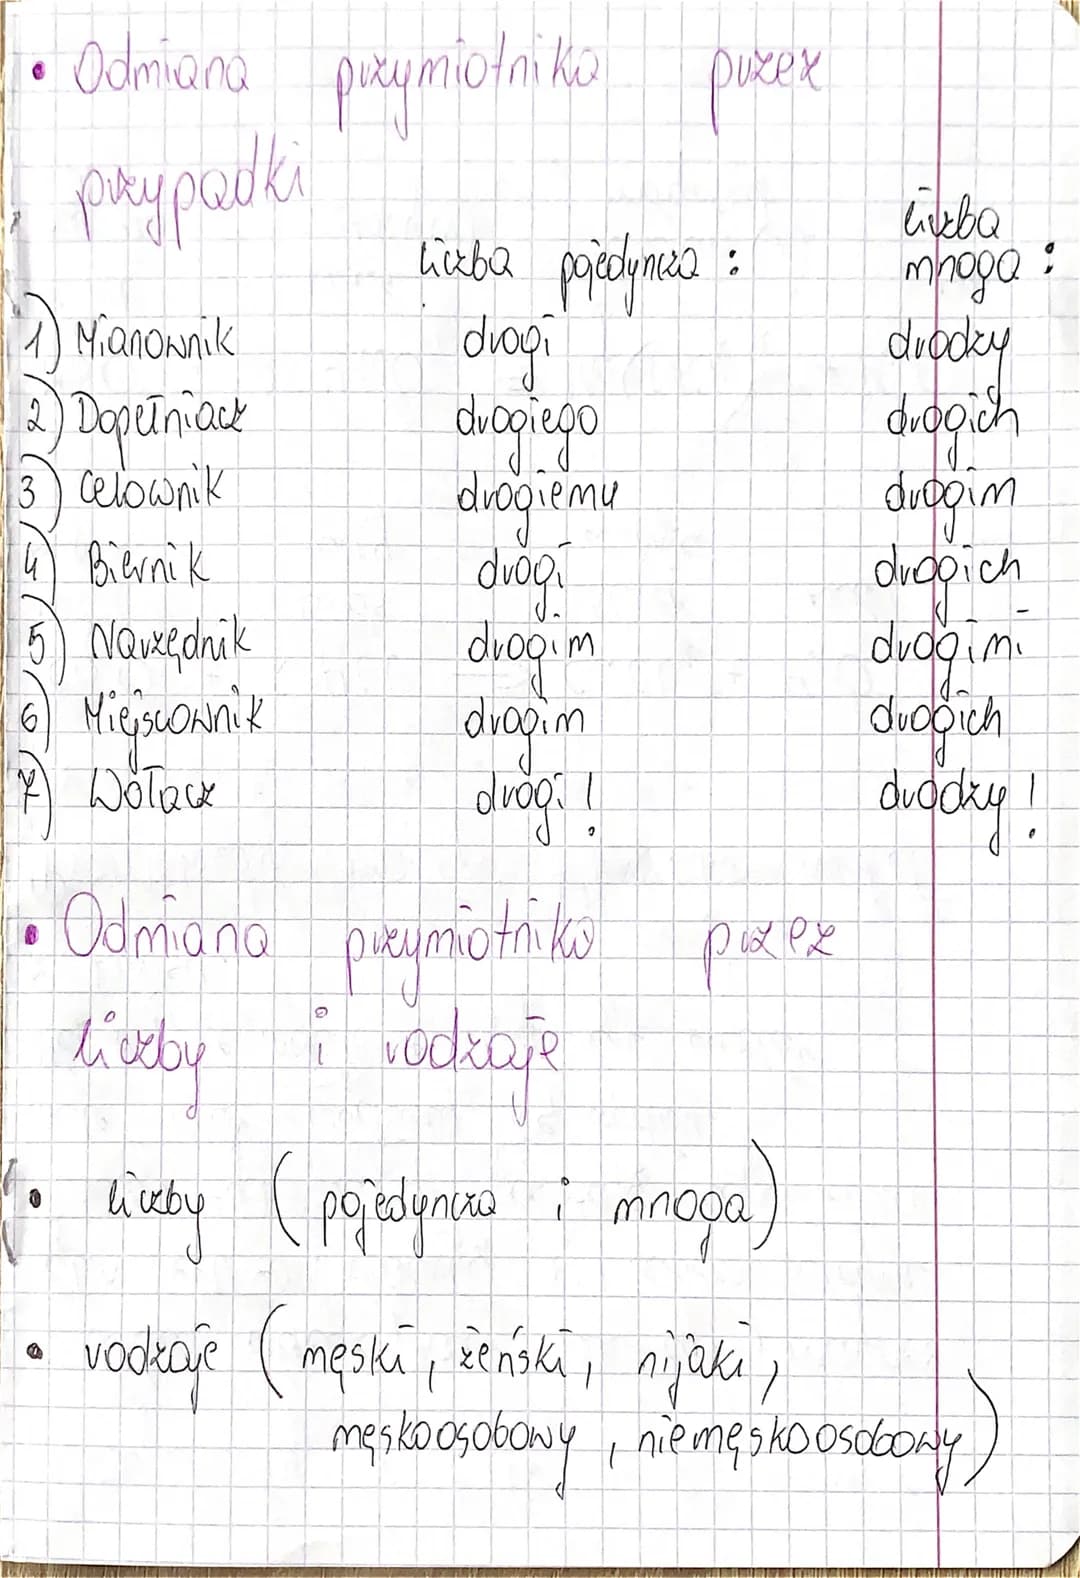 • Odmiana przymiotnika przez
przypadki
liczba pojedyncza : liczba mnoga :
1) Mianownik drogi drodzy
2) Dopełniacz drogiego drogich
3) Celownik drogiemu drogim
4) Biernik drogi drogich
5) Narzędnik drogim drogimi
6) Miejscownik drogim drogich
7) Wołacz drogi! drodzy!
• Odmiana przymiotnika przez
liczby i rodzaje
• liczby (pojedyncza i mnoga)
• rodzaje (męski, żeński, nijaki,
męskoosobowy, niemęskoosobowy)